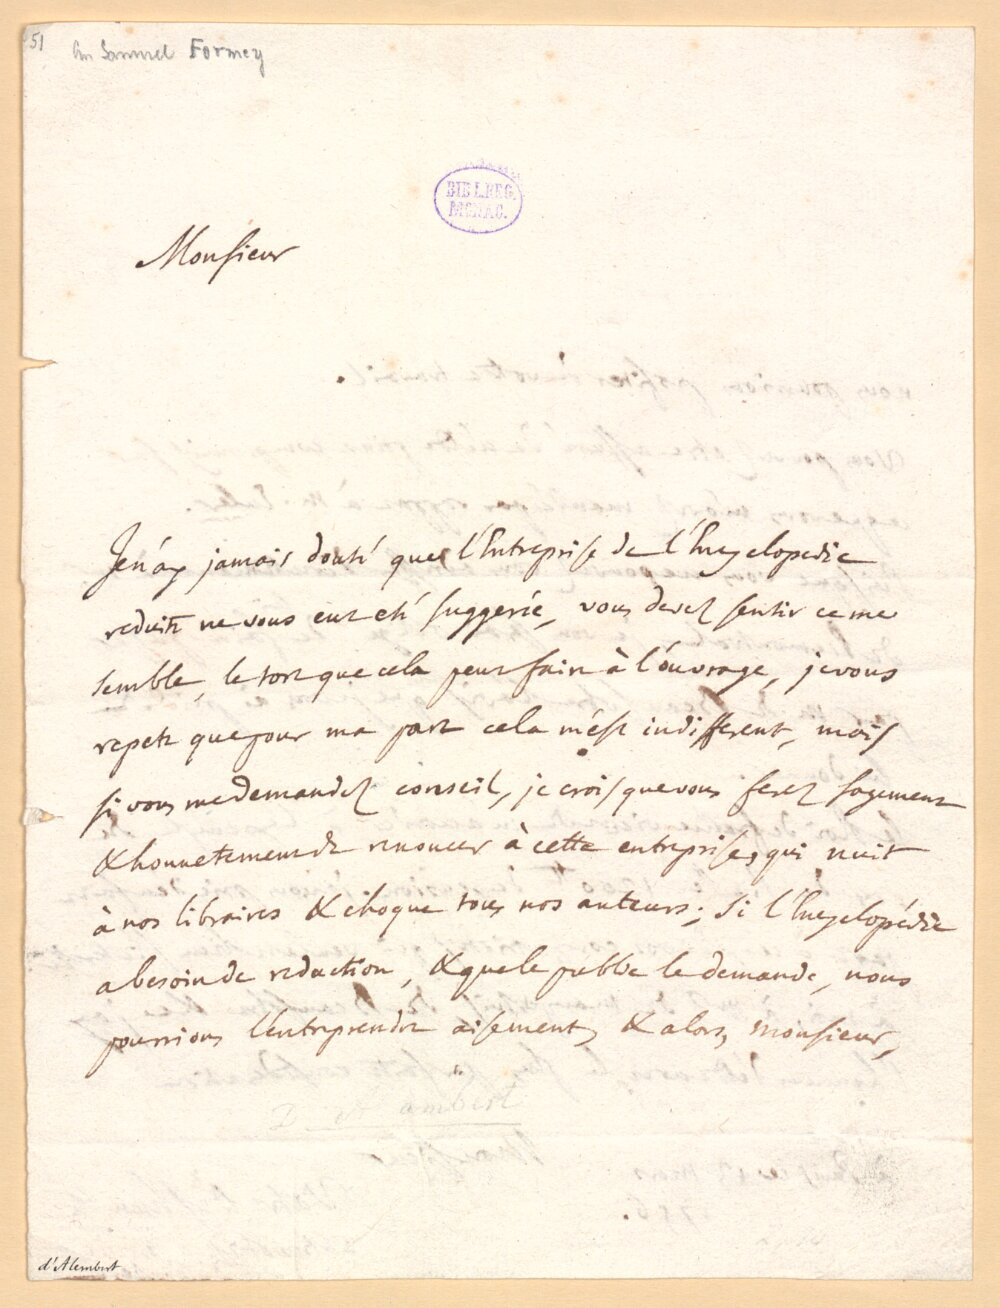 51
An Samuel Formey
BIBL. REG.
MONAC.
Monsieur
Je n'ay jamais douté que l'Entreprise de l'Encyclopedie
reduite ne vous eut eté suggerée, vous devez sentir ce me
semble, le tort que cela peut faire à l'ouvrage, je vous
repete que pour ma part cela m'est indifferent, mais
si vous me demandez conseil, je crois que vous ferez sagement
& honnetement de renoncer à cette entreprise, qui nuit
à nos libraires & choque tous nos auteurs; Si l'Encyclopédie
a besoin de reduction, & que le public le demande, nous
pourrions l'entreprendre aisement, & alors, monsieur,
D'Alembert
d'Alembert